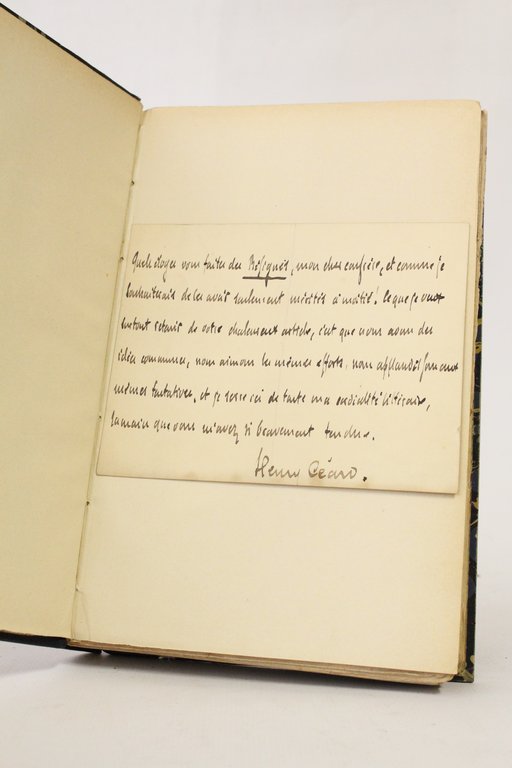 Quels éloges vous faites des Résignés, mon cher confrère, et comme je
souhaiterais de les avoir seulement mérités à moitié! Ce que je veux
surtout retenir de votre chaleureux article, c'est que nous avons des
idées communes, nous aimons les mêmes efforts, nous applaudissons aux
mêmes tentatives, et je serre ici de toute ma cordialité littéraire,
la main que vous m'avez si bravement tendue.
Henry Céard.